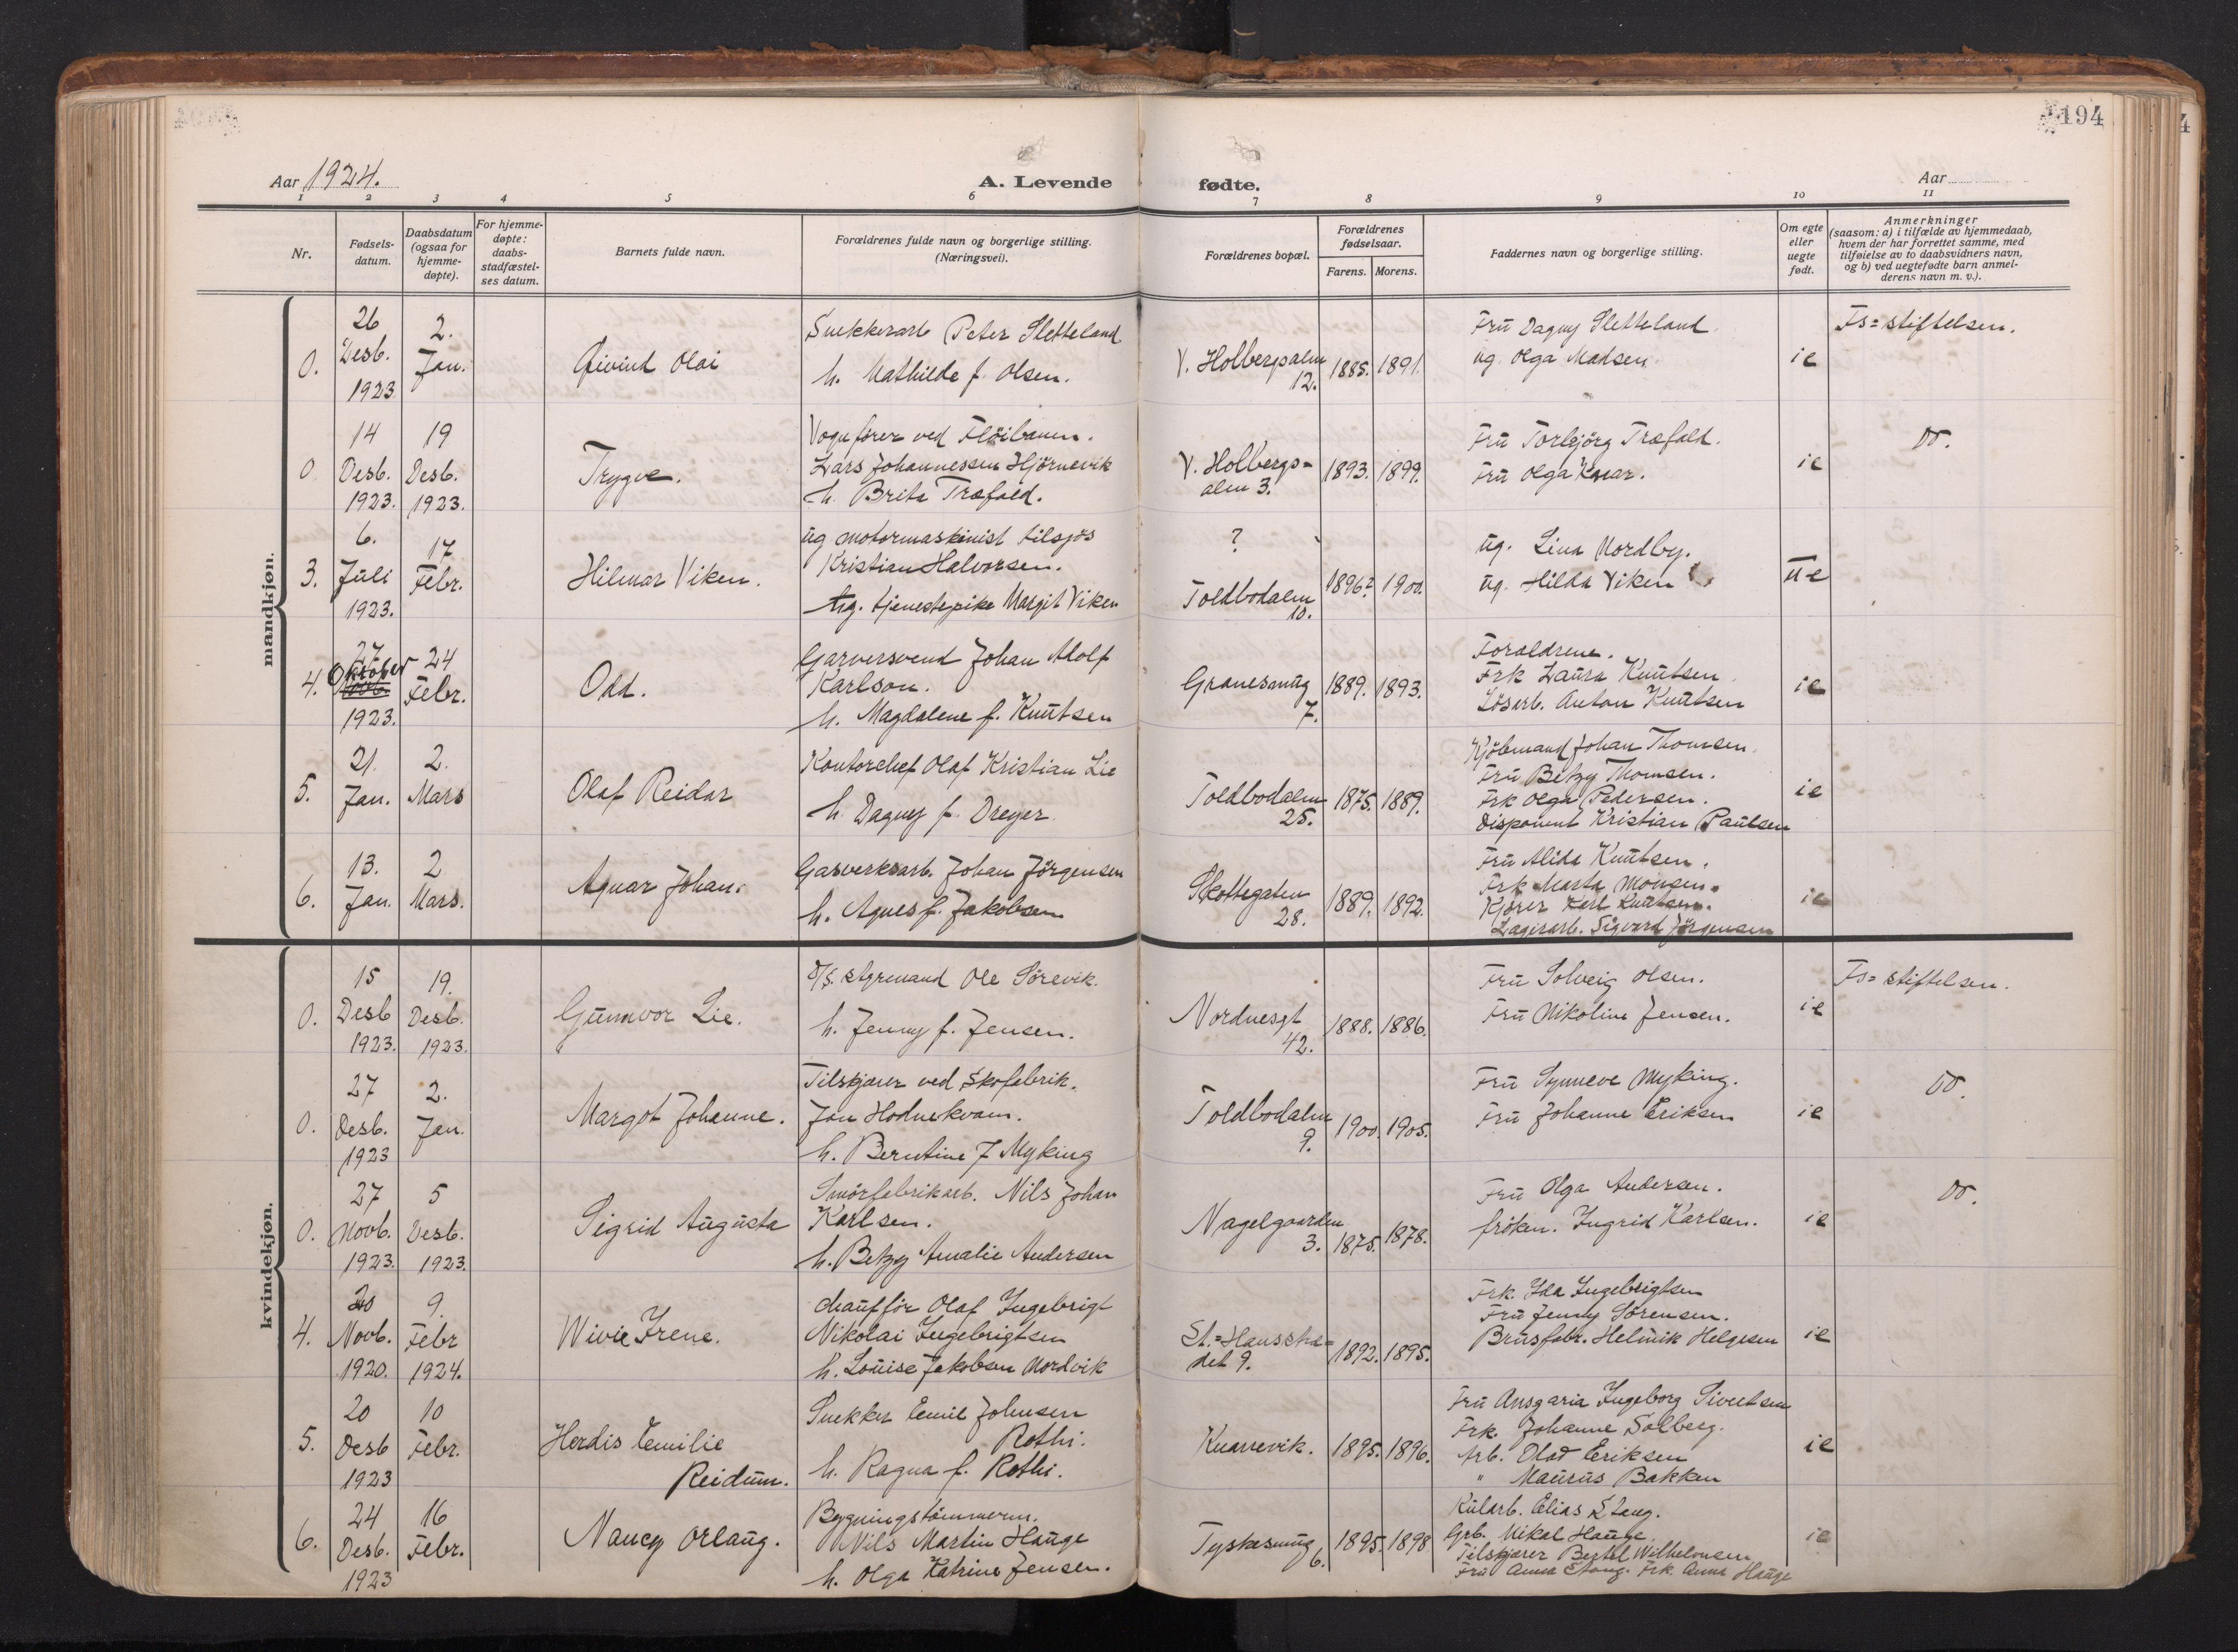 194
Aar 1924.
A. Levende fødte.
Aar
1 2 3 4 5 6 7 8 9 10 11
Nr.
Fødsels-
datum.
Daabsdatum
(ogsaa for
hjemme-
døpte).
For hjemme-
døpte:
daabs-
stadfæstel-
ses datum.
Barnets fulde navn.
Forældrenes fulde navn og borgerlige stilling.
(Næringsvei).
Forældrenes bopæl.
Forældrenes
fødselsaar.
Farens. Morens.
Faddernes navn og borgerlige stilling.
Om egte
eller
uegte
født.
Anmerkninger
(saasom: a) i tilfælde av hjemmedaab,
hvem der har forrettet samme, med
tilføielse av to daabsvidners navn,
og b) ved uegtefødte barn anmel-
derens navn m. v.).
mandkjøn.
0.
26
Desb.
1923
2.
Jan.
Øivind Olai
Snekkerarb Peter Sletteland
h. Mathilde f. Olsen.
V. Holbergsalm
12.
1885. 1891.
Fru Dagny Sletteland.
ug. Olga Madsen.
ie
Fs=stiftelsen.
0
14
Desb.
1923.
19
Desb.
1923.
Trygve.
Vognfører ved Fløibanen.
Lars Johannessen Hjørnevik
h. Brita Træfald.
V. Holbergs-
alm 3.
1893. 1899.
Fru Torbjørg Træfald.
Fru Olga Kvar.
ie
Do.
3.
6.
Juli
1923.
17
Febr.
Hilmar Viken.
ug motormaskinist tilsjøs
Kristian Halvorsen.
ug. tjenestepike Margit Viken
?
Toldbodalm
10.
1896? 1900.
ug. Lina Nordby.
ug. Hilda Viken
ue
4.
27
Oktober
Novb.
1923.
24
Febr.
Odd.
Garversvend Johan Adolf
Karlson.
h. Magdalene f. Knutsen
Granesmug
7.
1889. 1893.
Forældrene.
Frk Laura Knutsen
Løsarb. Anton Knutsen
ie
5.
21.
Jan.
2.
Mars
Olaf Reidar
Kontorchef Olaf Kristian Lie
h. Dagny f. Dreyer.
Toldbodalm
25.
1875. 1889.
Kjøbmand Johan Thomsen.
Fru Betzy Thomsen.
Frk Olga Pedersen.
Disponent Kristian Paulsen
ie
6.
13.
Jan.
2
Mars.
Agnar Johan.
Gasverksarb. Johan Jørgensen
h. Agnes f. Jakobsen
Skottegaten
28.
1889. 1892.
Fru Alida Knutsen.
Frk Marta Monsen.
Kjører Karl Knutsen.
Lagerarb. Sigvard Jørgensen
ie
kvindekjøn.
0.
15
Desb
1923.
19.
Desb.
1923.
Gunnvor Lie.
D/S. styrmand Ole Sørevik.
h. Jenny f. Jensen.
Nordnesgt
42.
1888. 1886.
Fru Solveig Olsen.
Fru Nikoline Jensen.
ie
Fs=stiftelsen.
0.
27
Desb.
1923
2.
Jan.
Margot Johanne.
Tilskjærer ved Skofabrik.
Jon Hodnekvam.
h. Berntine f Myking
Toldbodalm
9.
1900. 1905.
Fru Synneve Myking.
Fru Johanne Eriksen
ie
Do.
0.
27
Novb.
1923.
5
Desb.
1923.
Sigrid Augusta
Smørfabrikarb. Nils Johan
Karlsen.
h. Betzy Amalie Andersen
Nagelgaarden
3.
1875. 1878.
Fru Olga Andersen.
frøken. Ingrid Karlsen.
ie
Do.
4.
20
Novb.
1920.
9.
Febr
1924.
Wivie Irene.
chauffør Olaf Ingebrigt
Nikolai Ingebrigtsen
h. Louise Jakobsen Nordvik
St.=Hansstræ=
det 9.
1892. 1895.
Frk. Ida Ingebrigtsen
Fru Jenny Sørensen.
Brusfabr. Helmik Helgesen
ie
5.
20
Desb
1923
10
Febr.
Herdis Emilie
Reidun.
Snekker Emil Johnsen
Rothi.
h. Ragna f. Rothi.
Knarrevik.
1895. 1896.
Fru Ansgaria Ingeborg Sivertsen
Frk. Johanne Solberg.
Arb. Olad Eriksen
" Maurus Bakken
ie
6.
24
Desb.
1923
16
Febr.
Nancy Orlaug.
Bygningstømmerm.
Nils Martin Hauge
h. Olga Katrine Jensen.
Tyskesmug
6.
1895. 1898
Kularb. Elias Stang.
Grb. Mikal Hauge.
Tilskjærer Bertel Wilhelmsen
Fru Anna Stang. Frk. Anna Hauge
ie